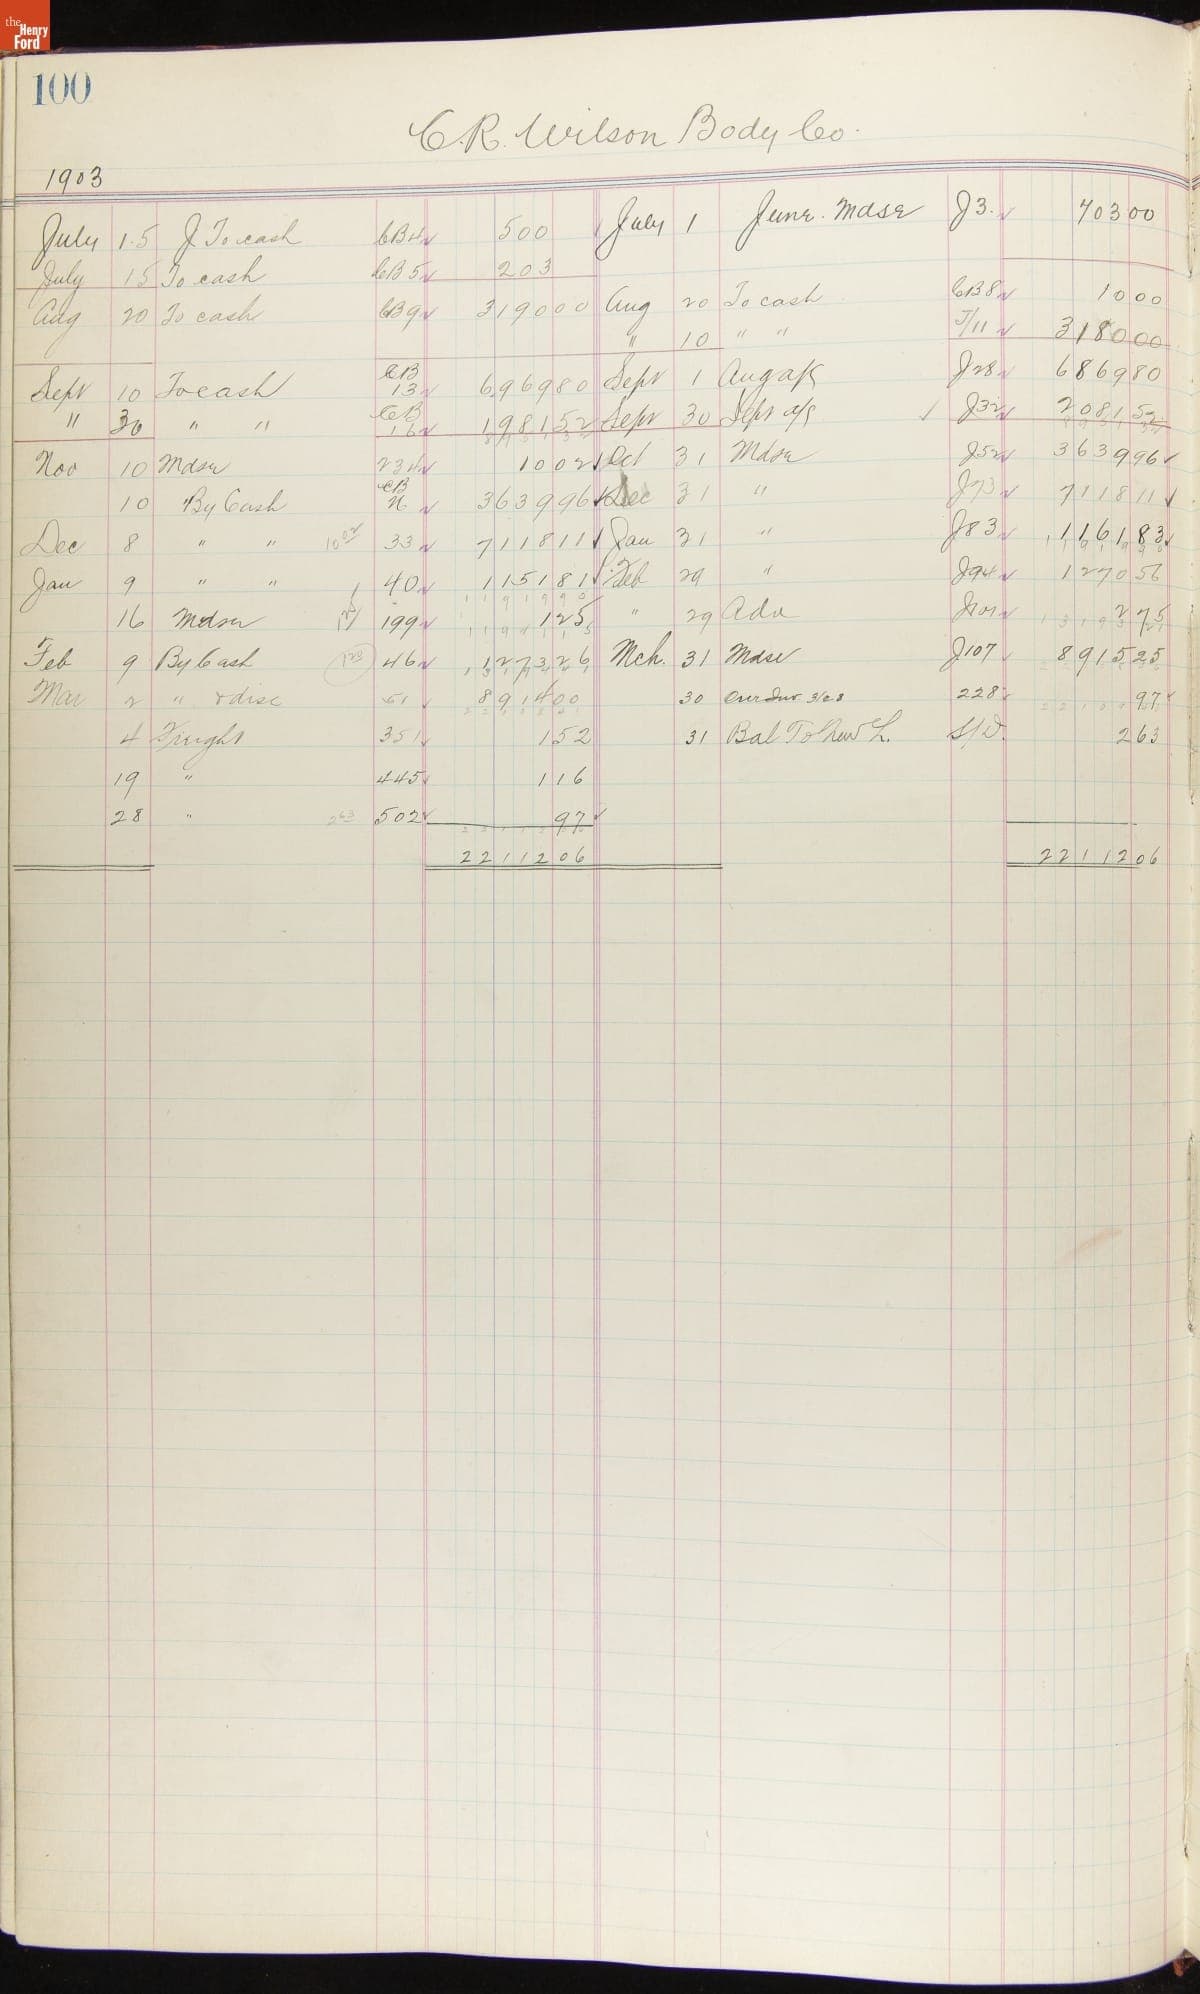 the Henry Ford
100
C.R. Wilson Body Co.
1903
July 15 To cash CB4 500 July 1 June. Mdse J3. 70300
July 15 To cash CB5 203
Aug 20 To cash CB9 319000 Aug 20 To cash CB8 1000
" 10 " " J/11 318000
Sept 10 To cash CB 13 696980 Sept 1 Aug a/c J28 686980
" 30 " " CB 16 198152 Sept 30 Sept a/c J32 208152
Nov 10 Mdse 234 1002 Oct 31 Mdse J52 363996
10 By Cash CB 363996 Dec 31 " J73 711811
Dec 8 " " 1002 33 711811 Jan 31 " J83 116183
Jan 9 " " 40 115181 Feb 29 " J94 127056
16 Mdse 199 125 " 29 Adv J101 275
Feb 9 By Cash 123 46 127326 Mch. 31 Mdse J107 891525
Mar 2 " & disc 51 891400 30 Our Inv. 3/28 228 97
4 Freight 351 152 31 Bal To New L. S/D. 263
19 " 445 116
28 " 263 502 97
2211206 2211206